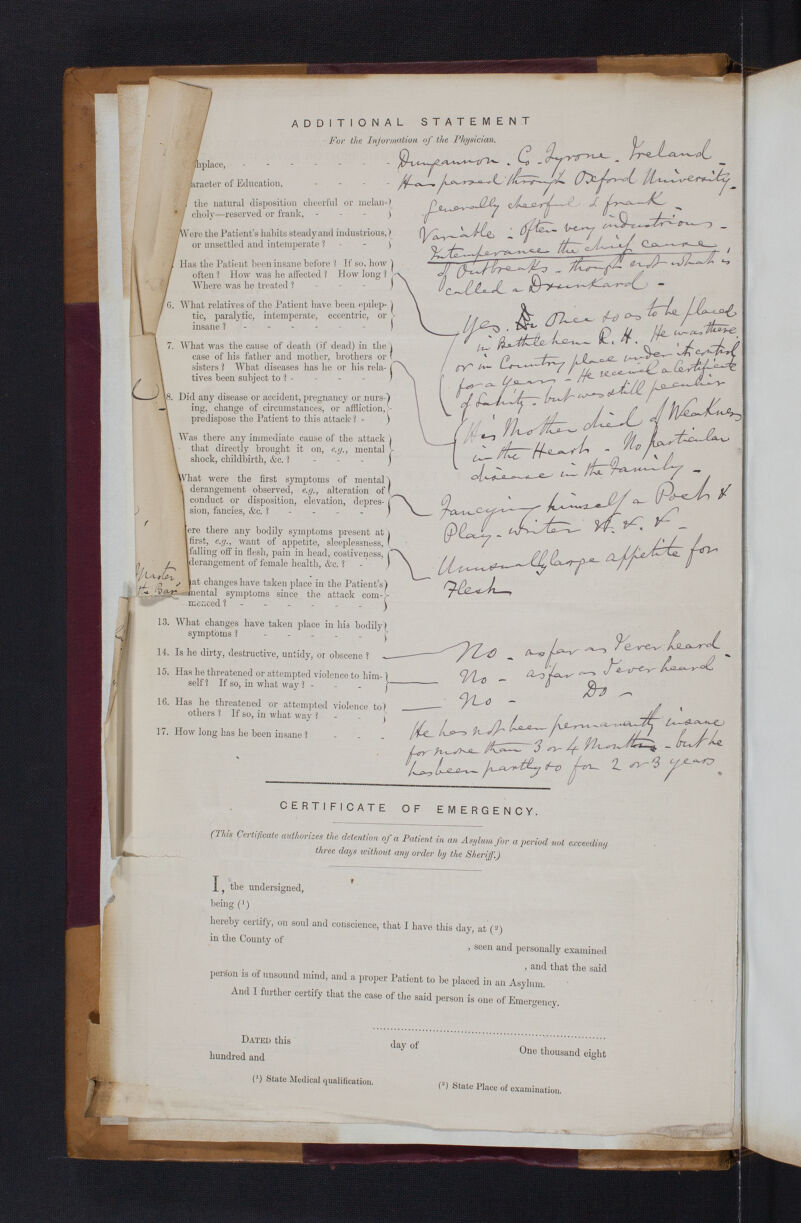 ADDITIONAL STATEMENT
For the Information of the Physician.
hplace, - - - - - - - Dungannon. Co. Tyrone. Ireland -
aracter of Education, - - - - Has passed through Oxford University -
the natural disposition cheerful or melan-
choly—reserved or frank, - - - -
generally cheerful & frank -
Were the Patient's habits steady and industrious,
or unsettled and intemperate? - - -
Variable : Often very industrious -
Intemperance the chief cause
of Outbreaks - though not what is
called a Drunkard -
Has the Patient been insane before? If so, how
often? How was he affected? How long?
Where was he treated? - - - -
Yes. Once so as to be placed
in Bethlehem R. H. He was there
or in Country place under its control
for a year - He received a Certificate
of Sanity - but was still peculiar
6. What relatives of the Patient have been epilep-
tic, paralytic, intemperate, eccentric, or
insane? - - - - - -
7. What was the cause of death (if dead) in the
case of his father and mother, brothers or
sisters? What diseases has he or his rela-
tives been subject to? - - - -
His Mother died of Weakness
in the Heart - No particular
disease in the Family -
8. Did any disease or accident, pregnancy or nurs-
ing, change of circumstances, or affliction,
predispose the Patient to this attack? -
Was there any immediate cause of the attack
that directly brought it on, e.g., mental
shock, childbirth, &c.? - - -
What were the first symptoms of mental
derangement observed, e.g., alteration of
conduct or disposition, elevation, depres-
sion, fancies, &c.? - - - -
Fancying himself a Poet &
Play-writer &. &. & -
ere there any bodily symptoms present at
first, e.g., want of appetite, sleeplessness,
falling off in flesh, pain in head, costiveness,
derangement of female health, &c.? -
Unusually large appetite for
Flesh
at changes have taken place in the Patient's
mental symptoms since the attack com-
menced? - - - - - -
the Bar
13. What changes have taken place in his bodily
symptoms? - - - - -
14. Is he dirty, destructive, untidy, or obscene? No - as far as I ever heard -
15. Has he threatened or attempted violence to him-
self? If so, in what way? - - -
No - as far as I ever heard
16. Has he threatened or attempted violence to
others? If so, in what way? - - -
No - Do -
17. How long has he been insane? - - -
He has not been permanently insane
for more than 3 or 4 Months - but he
has been partly so for 2 or 3 years.
CERTIFICATE OF EMERGENCY.
(This Certificate authorizes the detention of a Patient in an Asylum for a period not exceeding
three days without any order by the Sheriff.)
I, the undersigned,
being (1)
hereby certify, on soul and conscience, that I have this day, at (2)
in the County of , seen and personally examined
, and that the said
person is of unsound mind, and a proper Patient to be placed in an Asylum.
And I further certify that the case of the said person is one of Emergency.
DATED this day of One thousand eight
hundred and
(1) State Medical qualification. (2) State Place of examination.